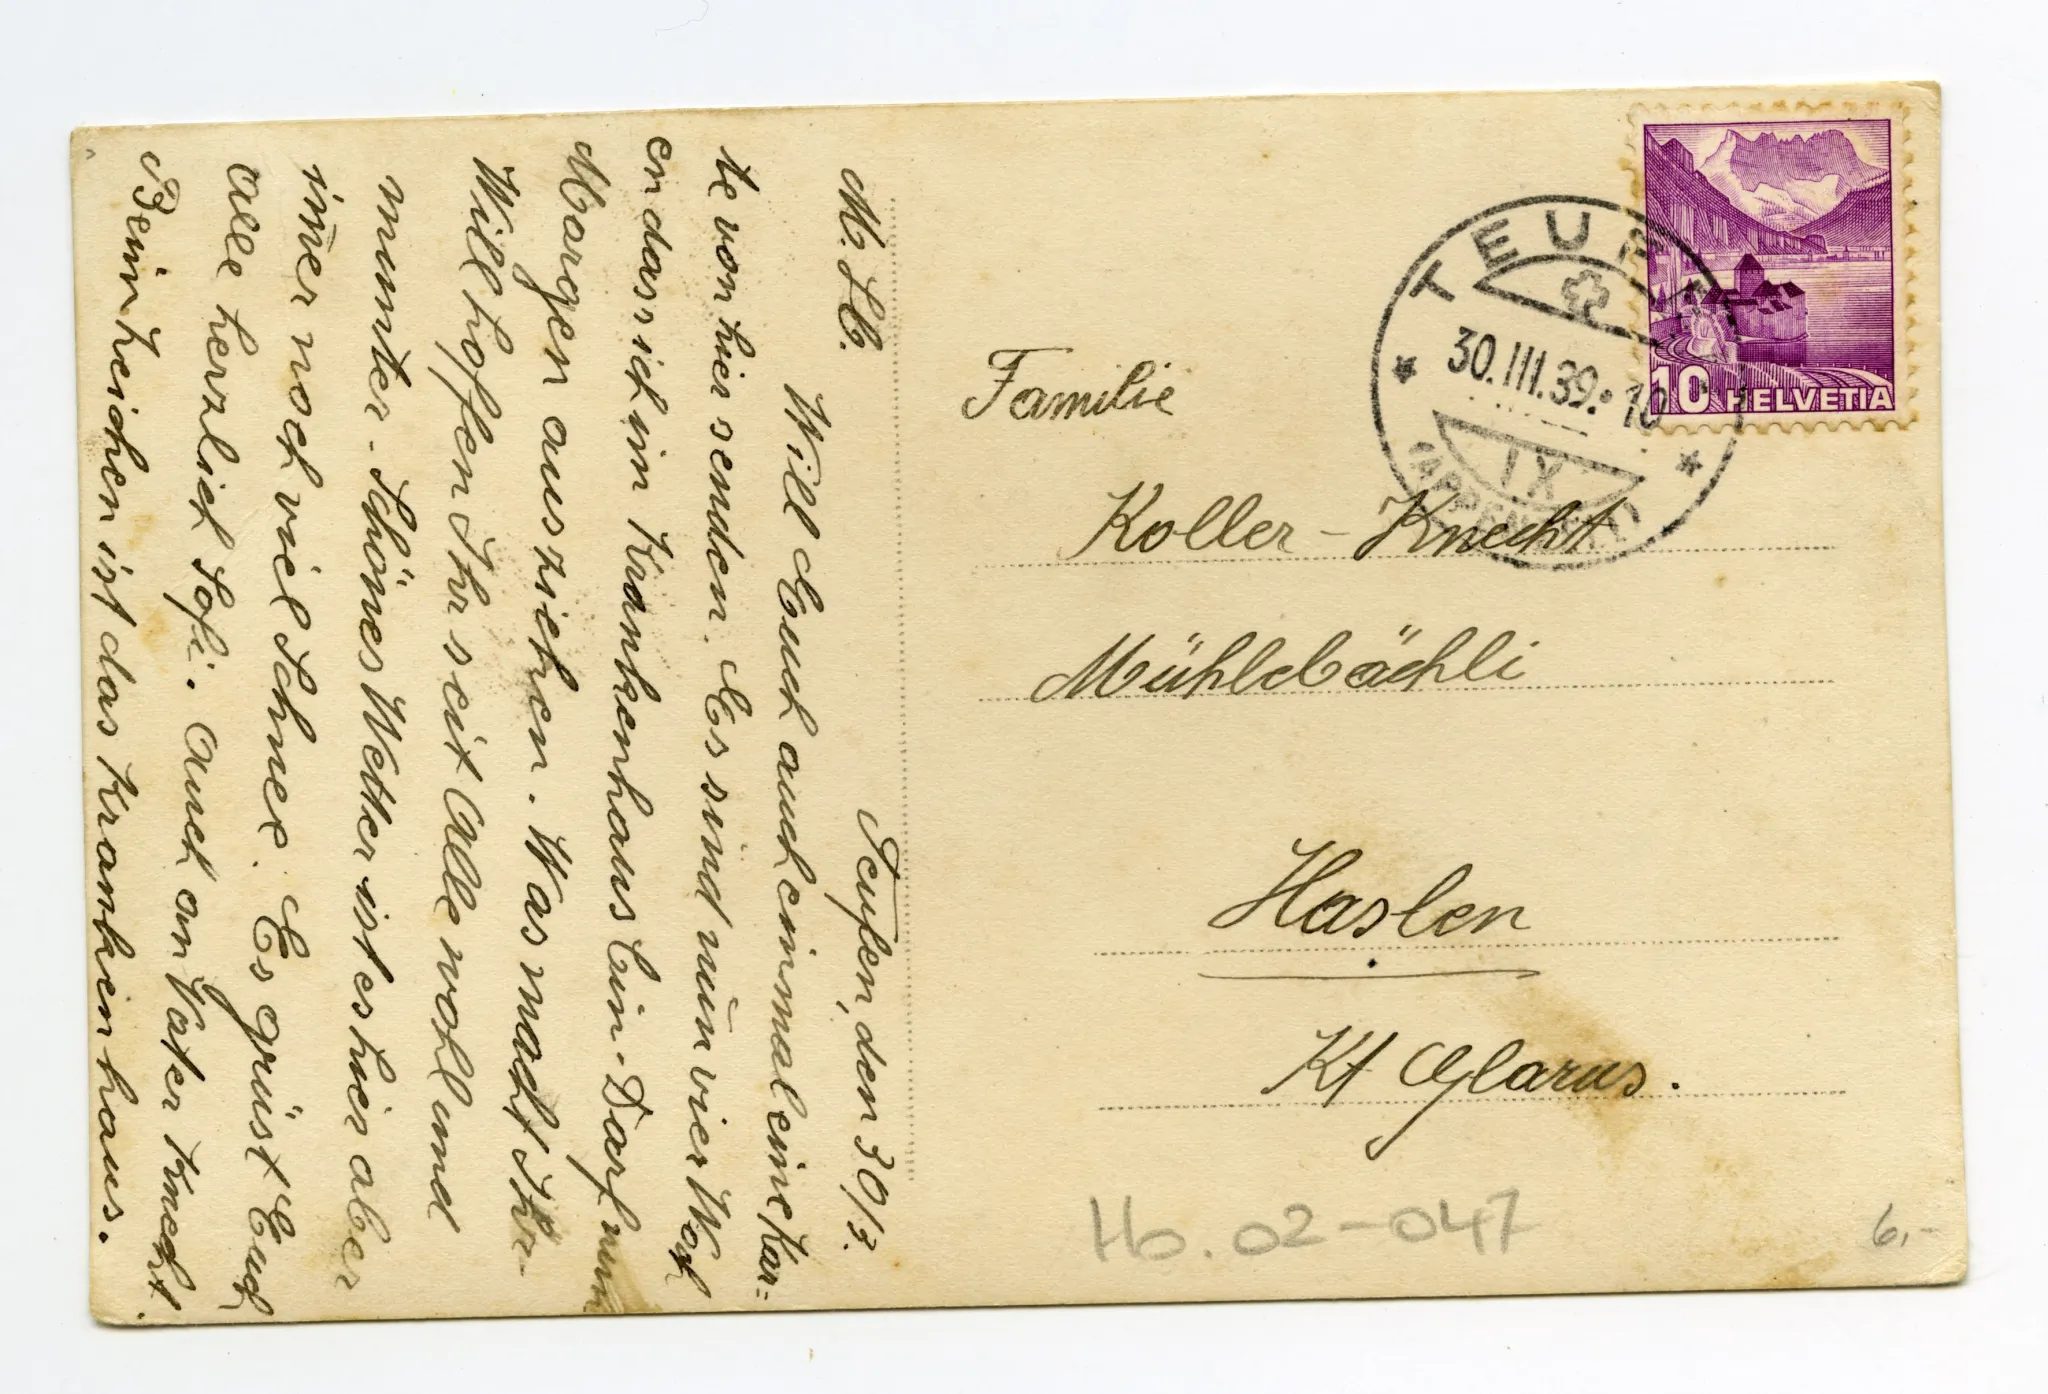 Teufen, den 30/3.
M. Lb.
Will Euch auch einmal eine Kar=
te von hier senden. Es sind nun vier Woch
en dass ich im Krankenhaus bin. Darf nun
Morgen ausziehen. Was macht Ihr
Will hoffen Ihr seit Alle wohl und
munter. Schönes Wetter ist es hier aber
im̄er noch viel Schnee. Es grüsst Euch
alle herzlich Sofi. Auch an Vater Knecht.
Beim Zeichen ist das Krankenhaus.
Familie
Koller - Knecht
Mühlebächli
Haslen
Kt Glarus.
TEUFEN
30.III.39. 10
IX
(APPENZELL)
10 HELVETIA
Hb. 02-047
6.-